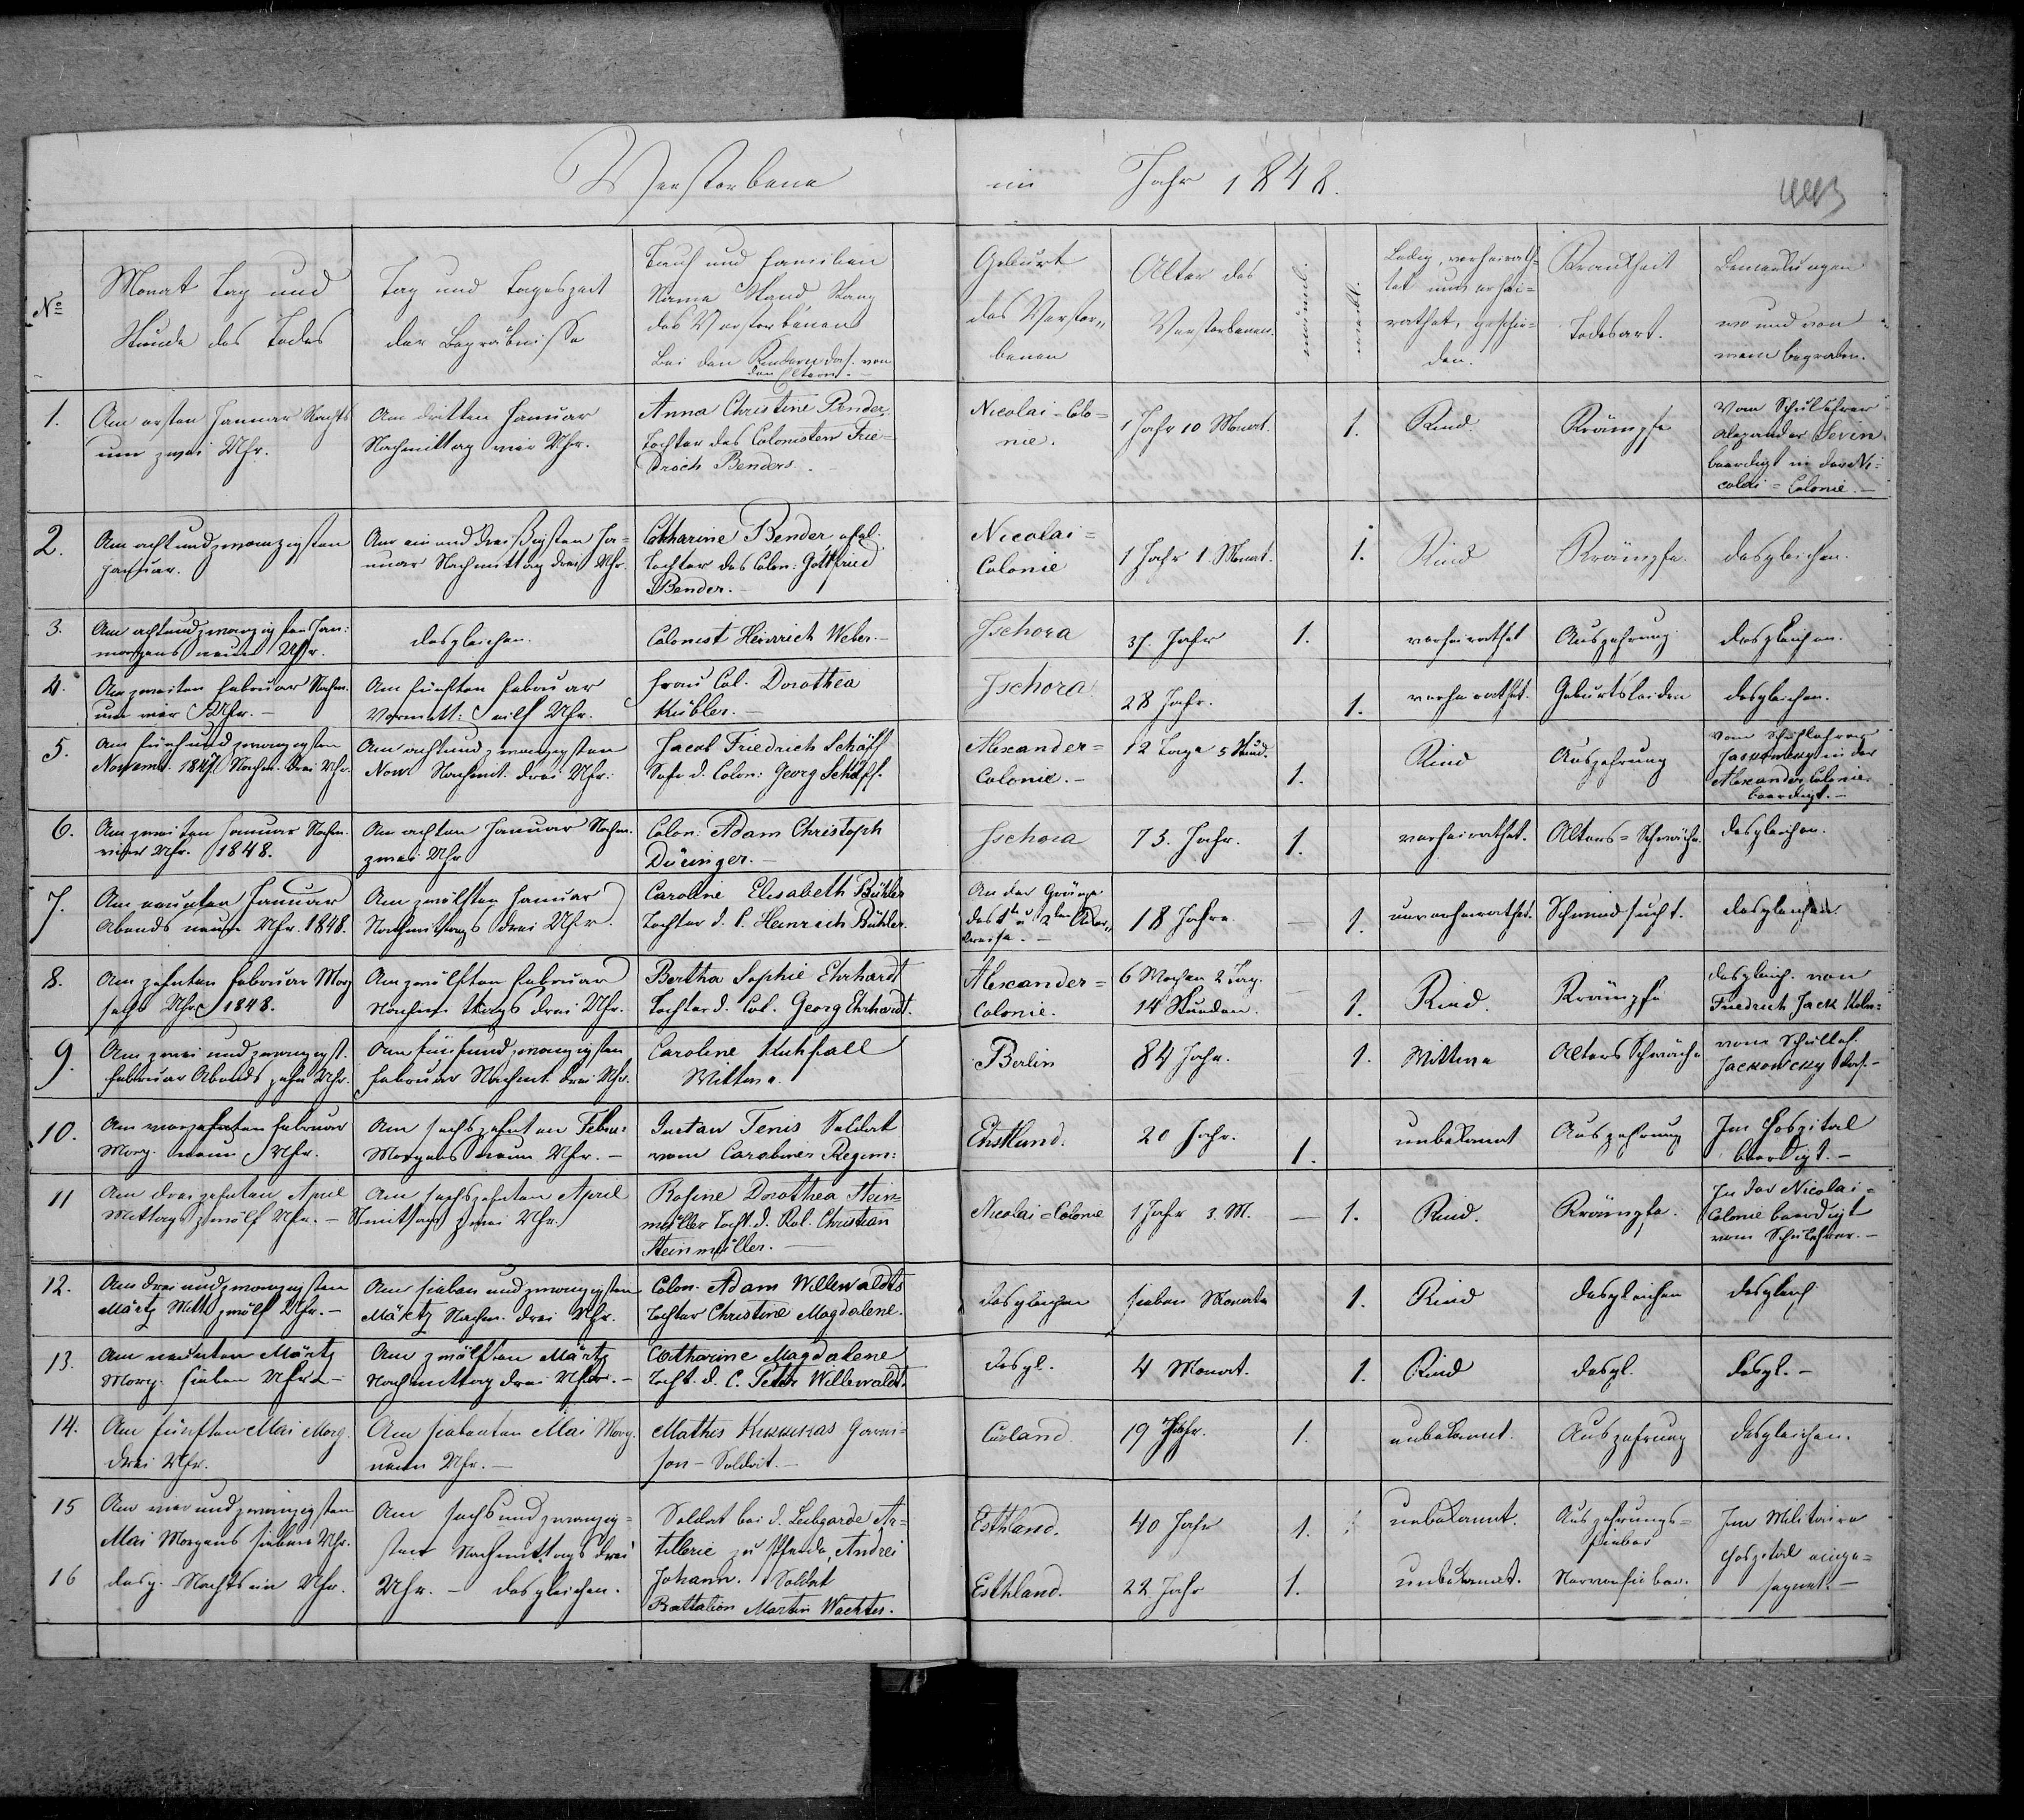 Verstorbene im Jahr 1848.
443
No
Monat Tag und
Stunde des Todes
Tag und Tageszeit
der Begräbnisse
Tauf und Familien
Name Stand Rang
des Verstorbenen
Bei den Kindern das. von
den Eltern.
Geburt
des Verstor„
benen
Alter des
Verstorbenen.
männl.
weibl.
Ledig, verheirath-
tet unverhei=
rathet, geschie=
den.
Krankheit
Todesart.
Bemerkungen
wo und von
wem begraben.
1.
Am ersten Januar Nachts
um zwei Uhr.
Am dritten Januar
Nachmittag vier Uhr.
Anna Christine Bender
Tochter des Colonisten Frie=
drich Benders.
Nicolai=Colo=
nie.
1 Jahr 10 Monat.
1.
Kind.
Krämpfe
Vom Schullehrer
Alexander Sevin
beerdigt in der Ni=
colai=Colonie.
2.
Am achtundzwanzigsten
Januar.
Am ein und dreißigsten Ja=
nuar Nachmittag drei Uhr.
Catharine Bender ehel.
Tochter des Colon: Gottfried
Bender.
Nicolai=
Colonie
1 Jahr 1. Monat.
1.
Kind
Krämpfe.
desgleichen.
3.
Am achtundzwanzigsten Jan:
morgens neun Uhr.
desgleichen.
Colonist Heinrich Weber.
Ischora
37. Jahr
1.
verheirathet
Auszehrung
desgleichen.
4.
Am zweiten Februar Nachm.
um vier Uhr.
Am fünften Februar
Vormitt: eilf Uhr.
Frau Col. Dorothea
Kübler.
Ischora.
28 Jahr.
1.
verheirathet.
Geburtsleiden
desgleichen.
5.
Am fünfundzwanzigsten
Novemb. 1847. Nachm. drei Uhr.
Am achtundzwanzigsten
Nov. Nachmit. drei Uhr.
Jacob Friedrich Schäff
Sohn d. Colon: Georg Schäff.
Alexander=
Colonie.
12 Tage 5 Stund.
1.
Kind
Auszehrung
Vom Schullehrer
Jackowcky in der
Alexander Colonie
beerdigt.
6.
Am zweiten Januar Nachm.
vier Uhr. 1848.
Am achten Januar Nachm.
zwei Uhr
Colon: Adam Christoph
Düringer.
Ischora
73. Jahr.
1.
verheirathet.
Alters=Schwäche.
desgleichen.
7.
Am neunten Januar
Abends neun Uhr. 1848.
Am zwölften Januar
Nachmittags drei Uhr.
Caroline Elisabeth Bühler
Tochter d. C. Heinrich Bühler.
An der Gränze
des 1ten u. 2ten
18 Jahre
1.
unverheirathet.
Schwindsucht.
desgleichen.
8.
Am zehnten Februar Morg
sechs Uhr 1848.
Am zwölften Februar
Nachmittags drei Uhr.
Bertha Sophie Ehrhardt
Tochter d. Col. Georg Ehrhardt.
Alexander=
Colonie.
6 Wochen 2 Tag.
14 Stunden.
1.
Kind.
Krämpfe
desgleich. von
Friedrich Jack
9.
Am zwei und zwanzigst.
Februar Abends zehn Uhr.
Am fünfundzwanzigsten
Februar Nachmit. drei Uhr.
Caroline Kuhfall
Wittwe.
Berlin
84 Jahr.
1.
Wittwe
Alters Schwäche
vom Schulleh.
Jackowcky das.
10.
Am vierzehnten Februar
Morg. neun Uhr.
Am sechszehnten Febru:
Morgens neun Uhr.
Gustav Tenis Soldat
vom Carabinier Regim:
Ehstland.
20 Jahr.
1.
unbekannt
Auszehrung
Im Hospital
beerdigt.
11
Am dreizehnten April
Mittags zwölf Uhr.
Am sechszehnten April
Nmittags zwei Uhr.
Rosine Dorothea Stein=
müller Tocht. d. Kol. Christian
Steinmüller.
Nicolai=Colonie
1 Jahr 3. M.
1.
Kind.
Krämpfe.
In der Nicolai=
Colonie beerdigt
vom Schullehrer.
12.
Am drei und zwanzigsten
Märtz Mitt zwölf Uhr.
Am sieben und zwanzigsten
Märtz Nachm. drei Uhr.
Colon. Adam Willewaldts
Tochter Christine Magdalene.
desgleichen
sieben Monate
1.
Kind
desgleichen
desgleich.
13.
Am neunten Märtz
Morg. sieben Uhr.
Am zwölften Märtz
Nachmittag drei Uhr.
Catharine Magdalene
Tocht. d. C. Peter Willewaldt.
desgl.
4 Monat.
1.
Kind
desgl.
desgl.
14.
Am fünften Mai Morg.
drei Uhr.
Am siebenten Mai Morg.
neun Uhr.
Mathis Garni=
son-Soldat.
Curland.
19 Jahr.
1.
unbekannt.
Auszehrung
desgleichen.
15
Am vier und zwanzigsten
Mai Morgens sieben Uhr.
Am sechs und zwanzig=
sten Nachmittags drei
Uhr.
Soldat bei d. Leibgarde Ar=
tillerie zu Pferde, Andrei
Johann.
Esthland.
40 Jahr
1.
unbekannt.
Auszehrungs=
fieber
Im Militaire
Hospital einge=
segnet.
16
desg. Nachts ein Uhr.
desgleichen.
Soldat
Battalion Martin Wachter.
Esthland.
22 Jahr
1.
unbekannt.
Nervenfieber.